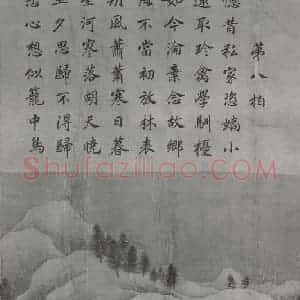 第八拍
憶昔私家恣嬌小
遠取珍禽學馴擾
如今淪棄念故鄉
悔不當初放林表
朔風蕭蕭寒日暮
星河寥落胡天曉
旦夕思歸不得歸
心想似籠中鳥
Shufaziliao.COM